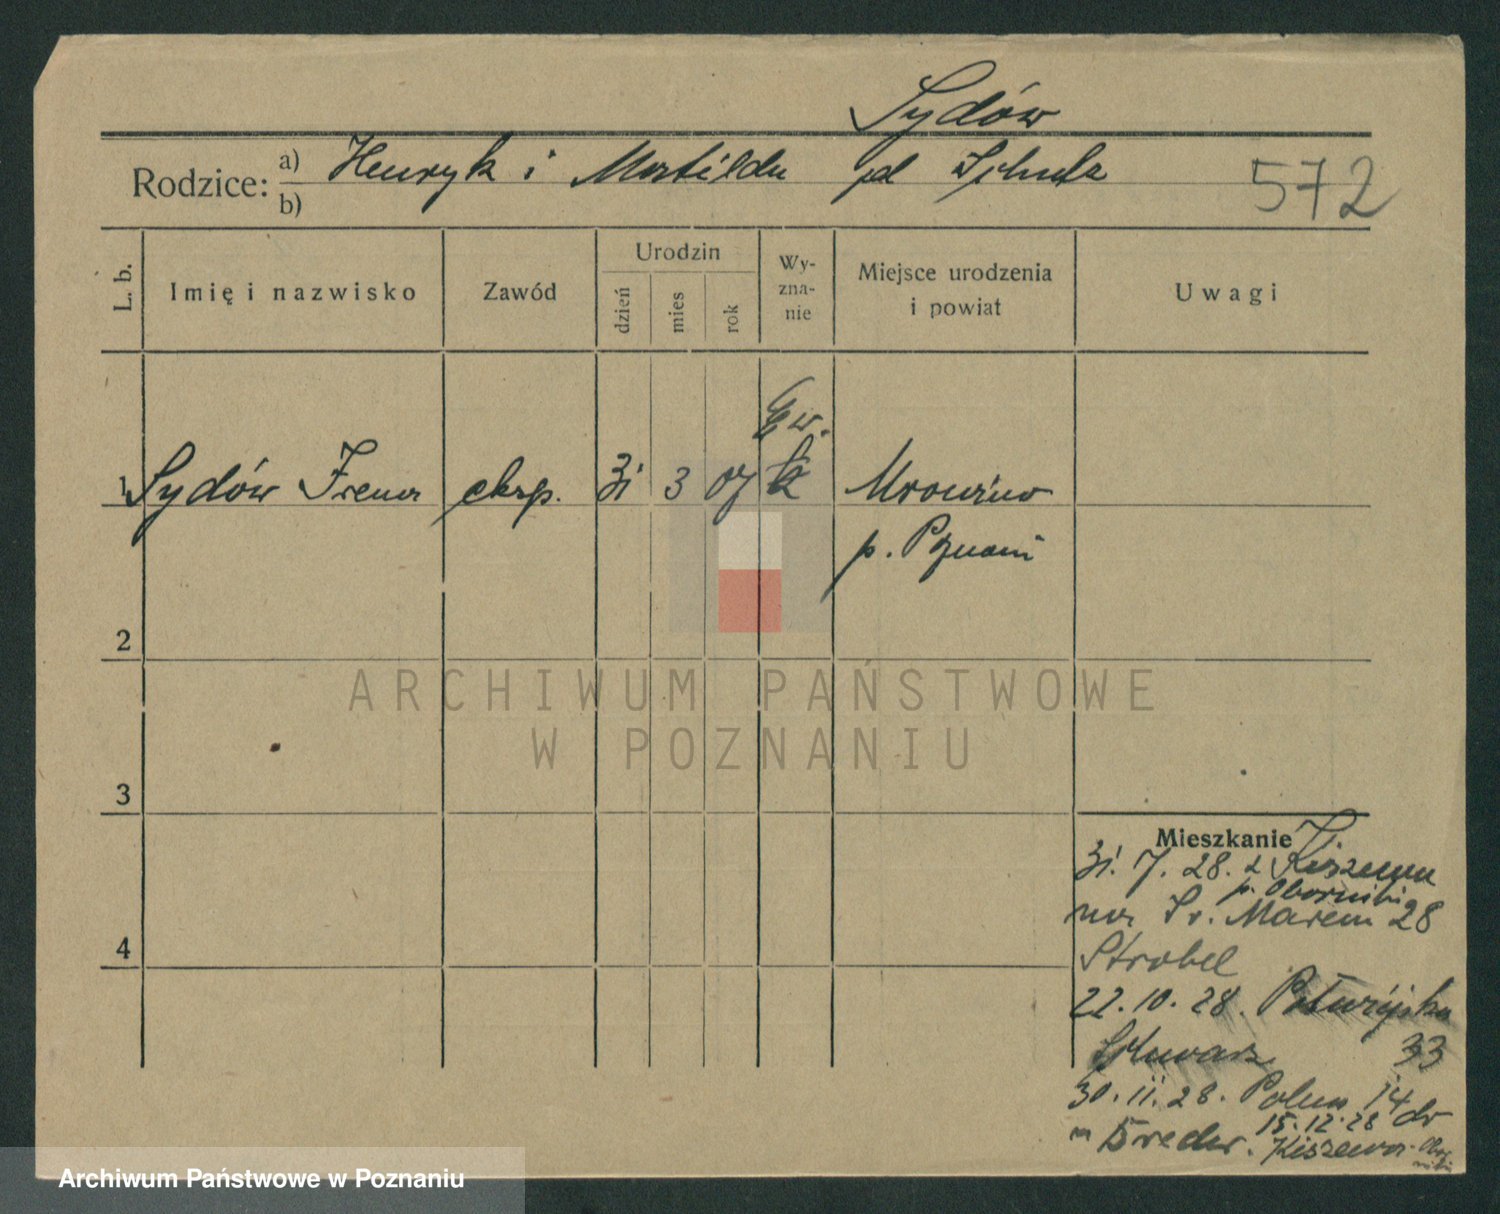 Sydów
Rodzice: a) Henryk i Matilda d Schulz
b)
572
L. b. Imię i nazwisko Zawód Urodzin dzień mies rok Wy-zna-nie Miejsce urodzenia i powiat Uwagi
Ew.
1 Sydów Irena eksp. 31 3 07 k Mrowino
p. Poznań
2
ARCHIWUM PAŃSTWOWE
W POZNANIU
3
Mieszkanie
31. 7. 28. z Kiszewa
p. Oborniki
na Św. Marcin 28
Strobel
22. 10. 28. Patr. Jacka
33
30. 11. 28. Polna 14
15.12.28 do
Kiszewa
4
Archiwum Państwowe w Poznaniu